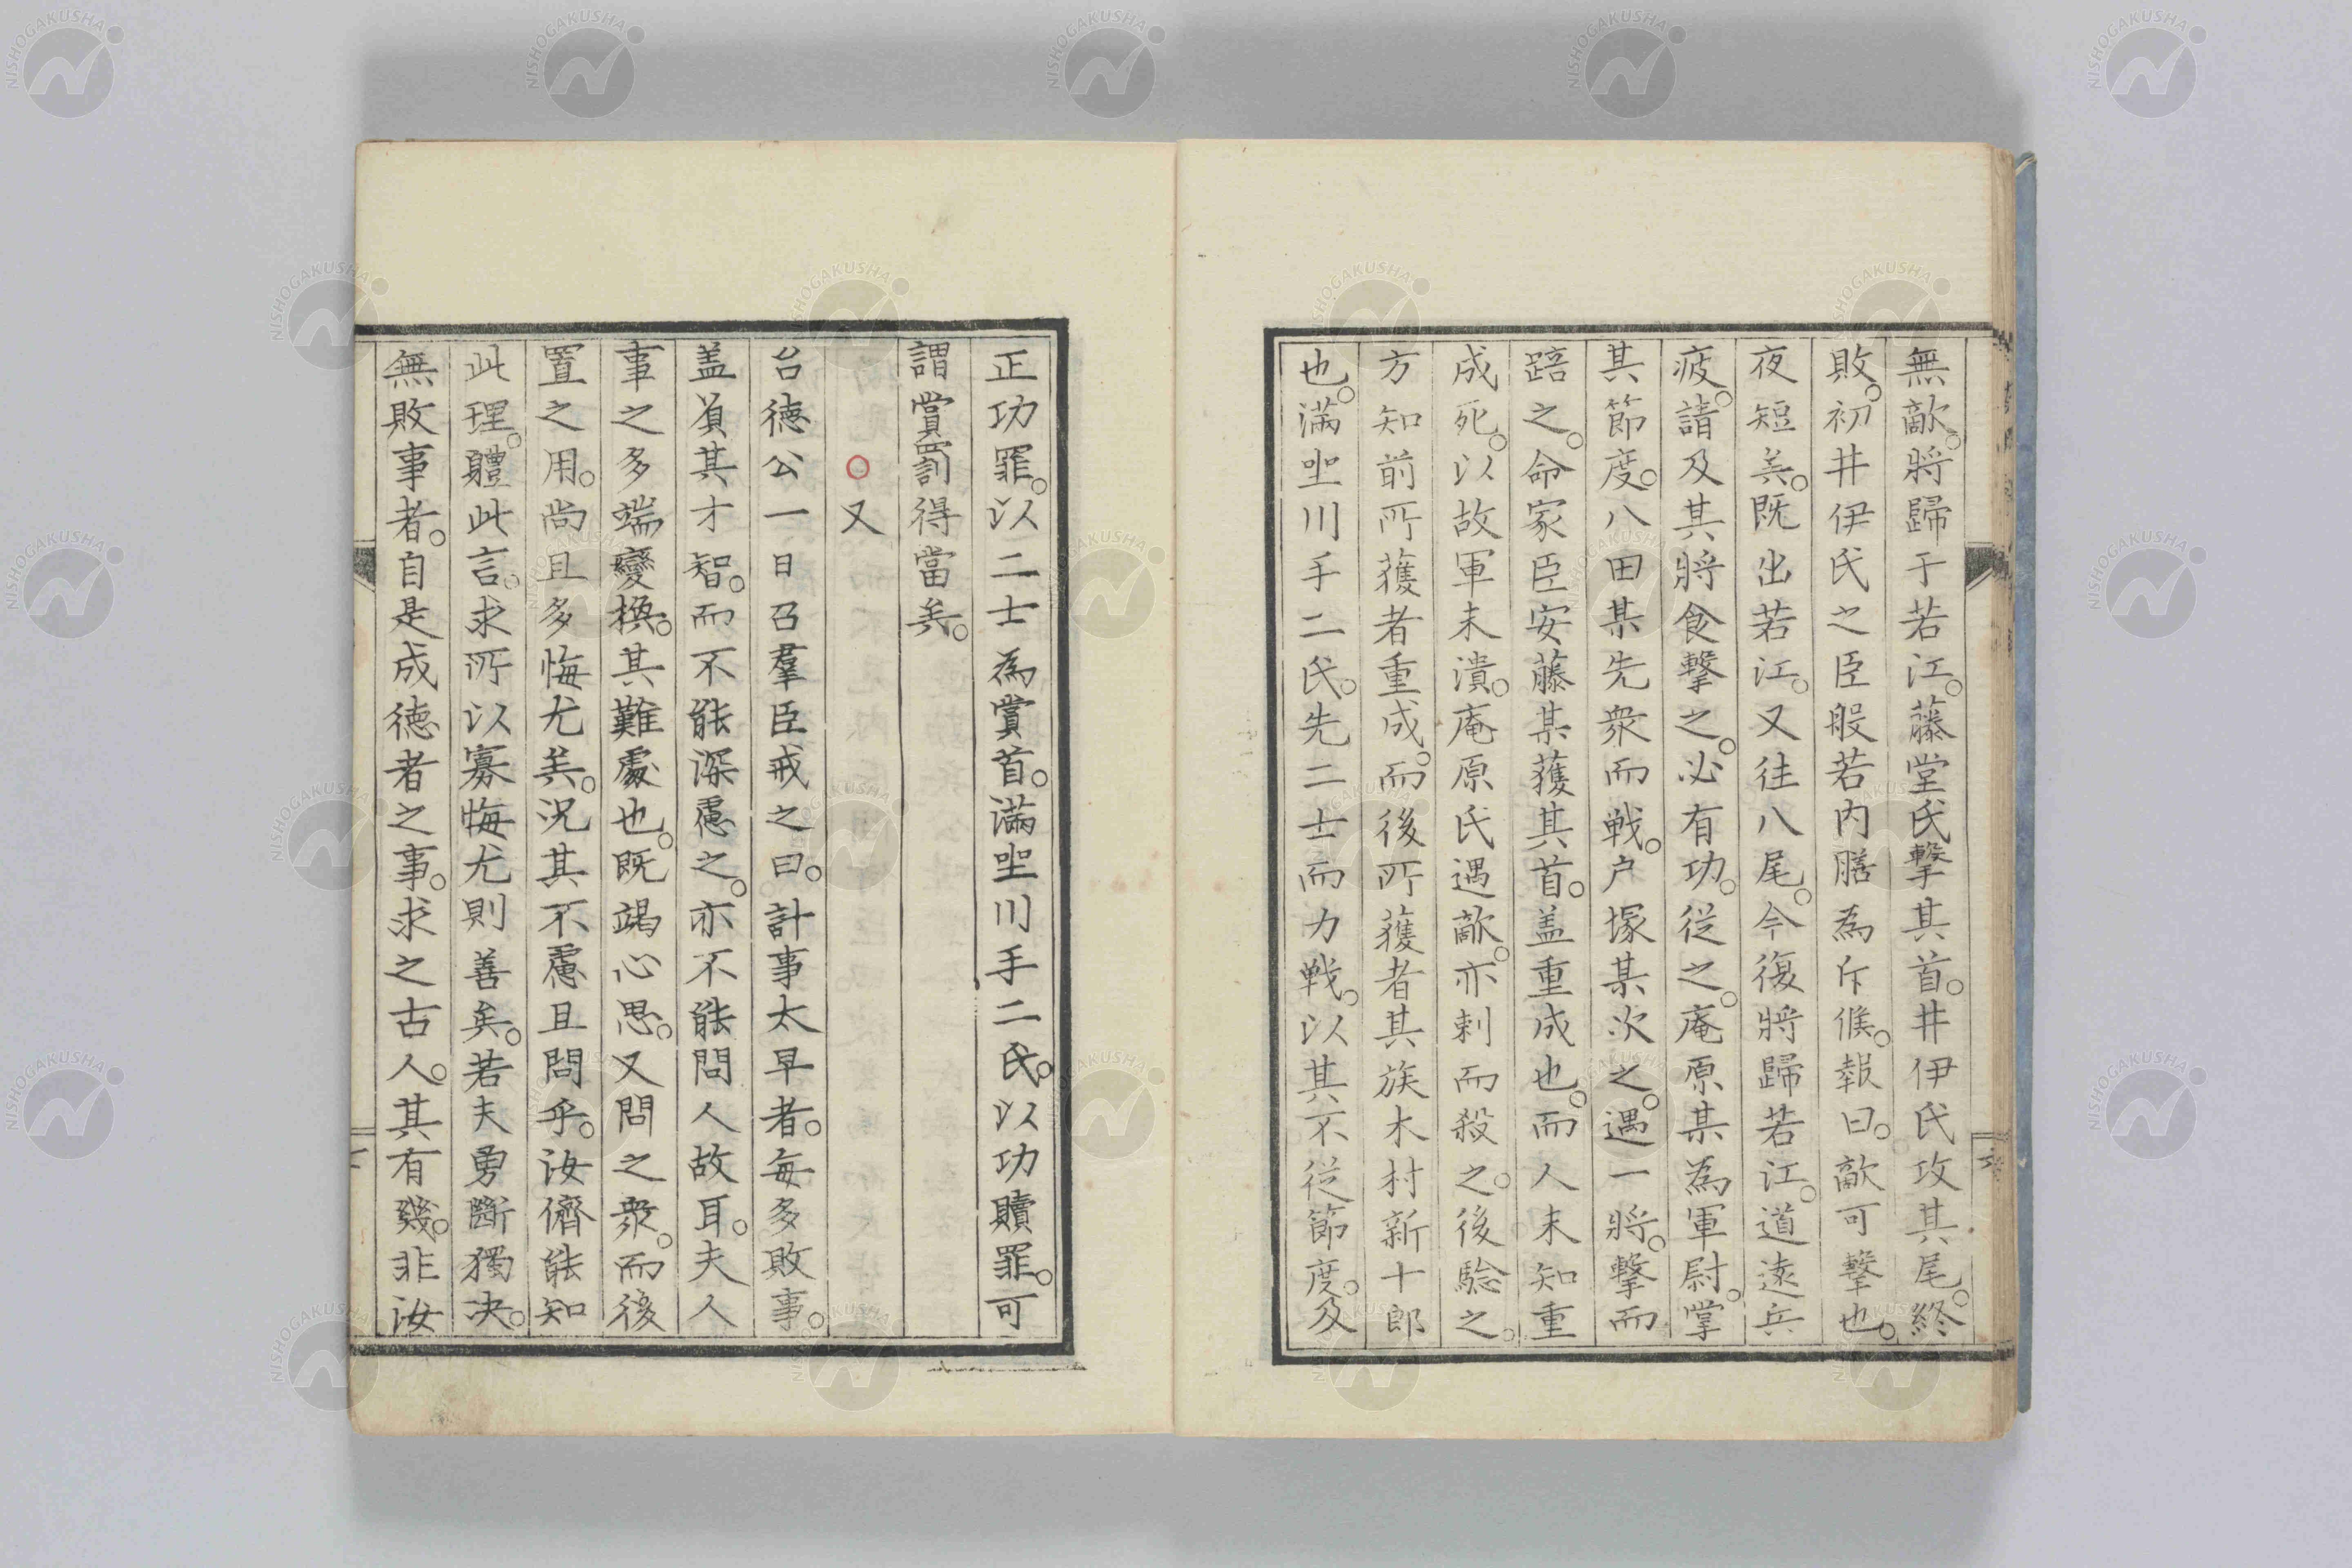 無敵。將歸于若江。藤堂氏擊其首。井伊氏攻其尾。終
敗。初井伊氏之臣般若内膳為斥候。報曰。敵可擊也。
夜短矣。既出若江。又往八尾。今復將歸若江。道遠兵
疲。請及其將食擊之。必有功。従之。庵原某為軍尉。掌
其節度。八田某先衆而戦。戸塚某次之。遇一將。擊而
踣之。命家臣安藤某獲其首。盖重成也。而人未知重
成死。以故軍未潰。庵原氏遇敵。亦刺而殺之。後驗之。
方知前所獲者重成。而後所獲者其族木村新十郎
也。滿坐川手二氏。先二士而力戦。以其不從節度。及
正功罪。以二士為賞首。滿坐川手二氏。以功贖罪。可
謂賞罰得當矣。
○又
台徳公一日召羣臣戒之曰。計事太早者。每多敗事。
盖負其才智。而不能深慮之。亦不能問人故耳。夫人
事之多端變換。其難處也。既竭心思。又問之衆。而後
置之用。尚且多悔尤矣。況其不慮且問乎。汝儕能知
此理。體此言。求所以寡悔尤則善矣。若夫勇斷獨決。
無敗事者。自是成徳者之事。求之古人。其有幾。非汝
NISHOGAKUSHA